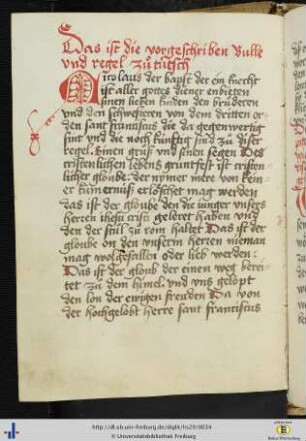 Das ist die vorgeschriben Bulle
vnd regel zů tütsch
Nicolaus der bapst der ein knecht
ist aller gottes diener enbieten
sinen lieben kinden den brüderen
vnd den schwesteren von dem dritten or¬
den sant franciscus die da gegenwertig
sint vnd die noch künftig sind zů diser
regel. Einen grůs vnd sinen segen Des
cristenlichen lebens gruntfest ist cristen¬
licher gloube. der nymer mere von kein¬
er kümernüß erlöschet mag werden
das ist der gloube den die iunger vnsers
herren ihesu cristi geleret haben vnd
den der stůl zů rom haltet Das ist der
gloube on den vnserm herren nieman
mag wolgefallen oder lieb werden:
Das ist der gloub der einen weg berei¬
tet zů dem himel. vnd vns gelopt
den lon der ewigen freuden Da von
der hochgelobt herre sant franciscus
http://dl.ub.uni-freiburg.de/diglit/hs29/0034
© Universitätsbibliothek Freiburg